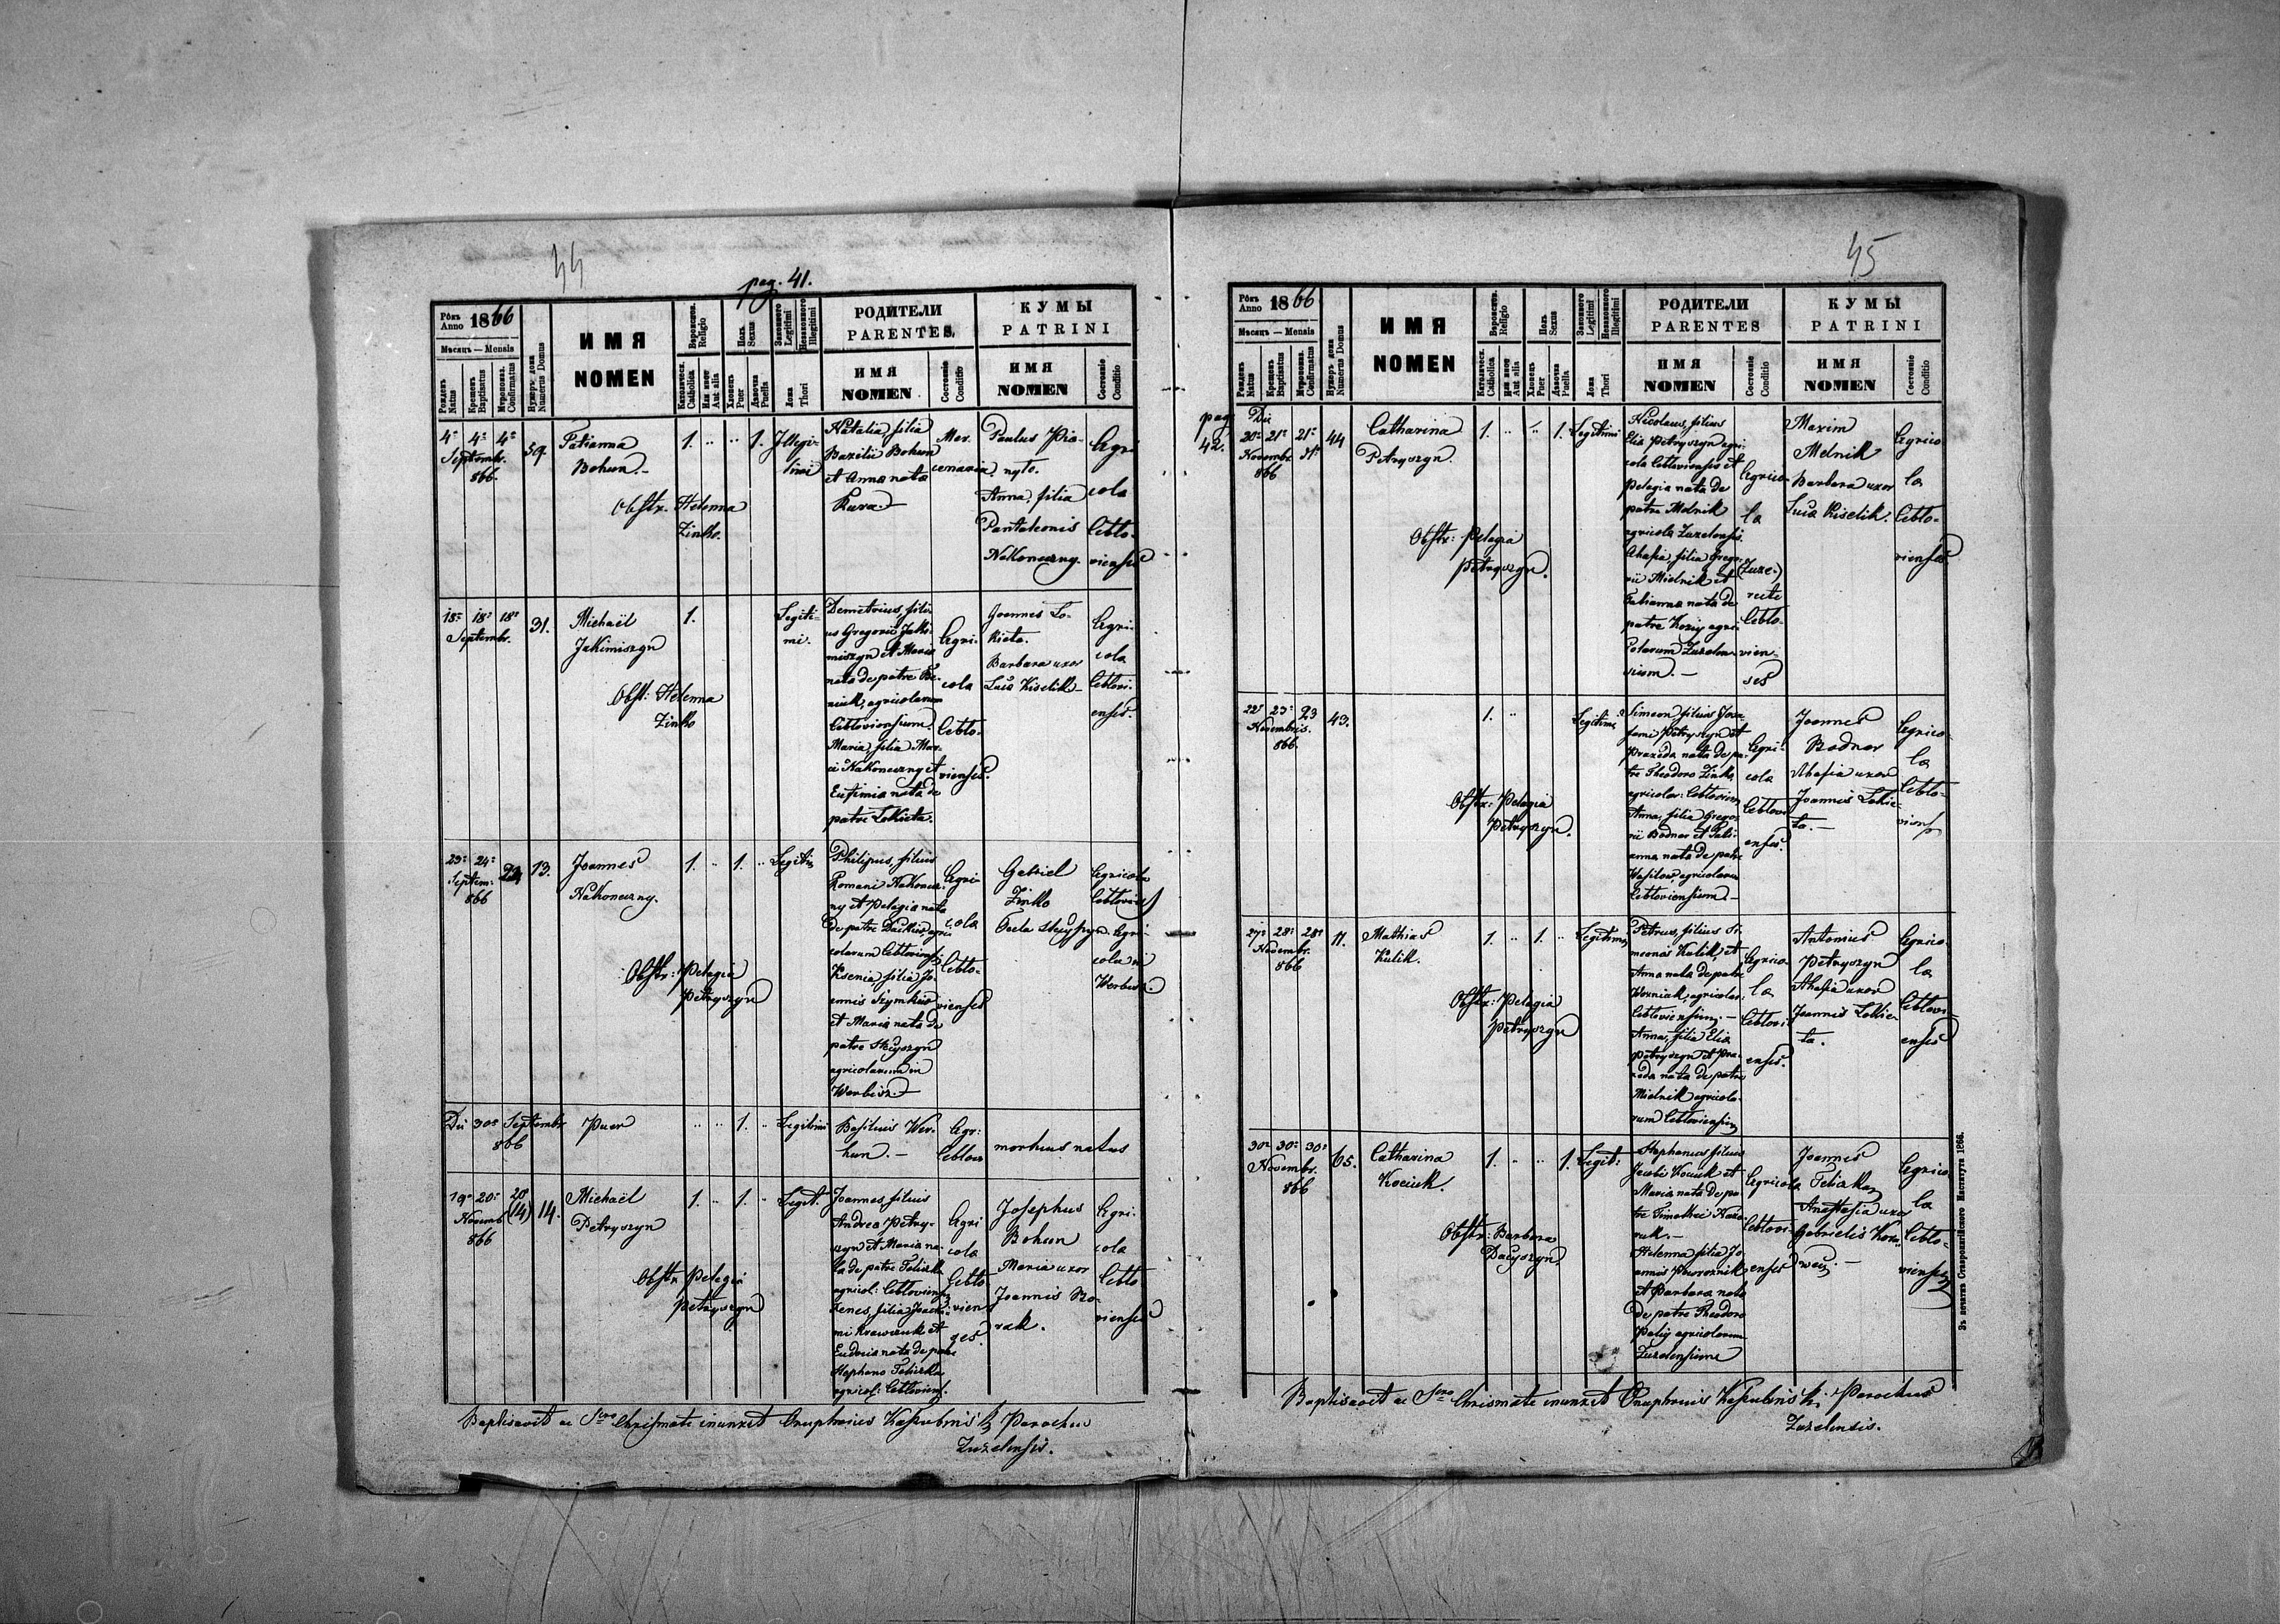 44
pag. 41.
Рôкъ Anno 1866
Мѣсяцъ — Mensis
Рожденъ Natus
Крещенъ Baptisatus
Мѵропомаз. Confirmatus
Нумеръ дома Numerus Domus
ИМЯ
NOMEN
Вѣроиспов. Religio
Католическ. Catholica
Или иное Aut alia
Полъ Sexus
Хлопецъ Puer
Дѣвочка Puella
Законного Legitimi
Незаконного Illegitimi
Ложа Thori
РОДИТЕЛИ
PARENTES
ИМЯ
NOMEN
Состояніе Conditio
КУМЫ
PATRINI
ИМЯ
NOMEN
Состояніе Conditio
4a 4a 4a
Septembr.
866.
59.
Tatianna
Bohun.
Obstr. Helenna
Zinko.
1. .. .. 1.
Illegi-
timi
Natalia, filia
Bazilii Bohun
et Anna nata
Kura.
Mer-
cenaria
Paulus Pia-
nyło.
Anna, filia
Pantaleonis
Nakoneczny.
Agri
cola
Ceblo-
viensis
18a 18a 18a
Septembr.
31.
Michaël
Jakimiszyn
Obst: Helenna
Zinko
1.
Legiti-
mi.
Demetrius, fili-
us Gregorii Jaki-
miszyn et Maria
nata de patre
agricolarum
Cebloviensium.
Maria, filia Mar-
ci Nakoneczny et
Eufimia nata de
patre Lokieta.
Agri-
cola
Ceblo-
vienses.
Joannes Lo-
kieta.
Barbara uxor
Lucä Kiselik
Agri-
cola
Céblovi-
enses.
23a 24a 24
Septem:
866
13.
Joannes
Nakoneczny.
Obstr: Pelagia
Petryszyn
1. .. 1. ..
Legitim
Philipus, filius
Romani Nakonecz-
ny et Pelagia nata
de patre agri-
colarum Cebloviensi
Ksenia, filia Jo-
annis Szymkiw
et Maria nata de
patre
agricolarum in
Werbisz.
Agri-
cola
Ceblo-
vienses
Gabriel
Zinko
Tecla
Agricola
Cebloviens
Agri-
cola in
Werbisz.
Die 30a Septembr
866
Puer
.. .. 1. ..
Legitimi
Basilius Wer-
hun.
Agr:
Ceblov
mortuus natus
19a 20a 20a
Novemb (14)
866
14.
Michaël
Petryszyn
Obstr. Pelagia
Petryszyn
1. .. 1. ..
Legit.
Joannes, filius
Andrea Petry-
szyn et Maria na-
ta de patre Teliszka
agricol: Cebloviens
filia
mi Krawczuk et
Eudocia nata de patre
Stephano Teliszka
agricol: Cebloviens.
Agri
cola
Ceblo-
vien
ses
Josephus
Bohun
Maria uxor
Joannis Bo-
rak.
Agri-
cola
Ceblo
vienses
Baptisavit ac Scro Chrismate inunxit Onuphrius Parochus
Zuzelensis.
45
pag.
42.
Рôкъ Anno 1866
Мѣсяцъ — Mensis
Рожденъ Natus
Крещенъ Baptisatus
Мѵропомаз. Confirmatus
Нумеръ дома Numerus Domus
ИМЯ
NOMEN
Вѣроиспов. Religio
Католическ. Catholica
Или иное Aut alia
Полъ Sexus
Хлопецъ Puer
Дѣвочка Puella
Законного Legitimi
Незаконного Illegitimi
Ложа Thori
РОДИТЕЛИ
PARENTES
ИМЯ
NOMEN
Состояніе Conditio
КУМЫ
PATRINI
ИМЯ
NOMEN
Состояніе Conditio
Die
20a 21a 21a
Novembr
866
44
Catharina
Petryszyn.
Obstr: Pelagia
Petryszyn.
1. .. .. 1.
Legitimi
Nicolaus, filius
Elia Petryszyn agri-
cola Cebloviensis et
Pelagia nata de
patre Melnik
agricola Zuzelensis.
Ahafia, filia Grego-
rii Mielnik et
Tatianna nata de
patre Koziy agri-
colarum Zuzelen-
sium.
Agrico-
la
(Zuze-)
recte
Ceblo-
vien-
ses
Maxim
Melnik
Barbara uxor
Lucä Kiselik.
Agrico
la
Ceblo-
vienses
22a 23a 23
Novembris.
866.
49.
Obstr: Pelagia
Petryszyn.
1. ..
Legitimi
Simeon filius
Petryszyn et
Praxeda nata de pa-
tre Theodoro Zinko,
agricolar: Cebloviens
Anna, filia Grego-
rii Bodnar et Tati-
anna nata de patre
Wasilow, agricolarum
Cebloviensium.
Agri-
cola
Ceblovi
enses.
Joannes
Bodnar
Ahafia uxor
Joannis Lokie-
ta.
Agrico-
la
Ceblo-
viens
27a 28a 28a
Novembr.
866
11.
Mathias
Kulik.
Obstr: Pelagia
Petryszyn
1. .. 1. ..
Legitimi
Petrus, filius Si-
meonis Kulik, et
Anna nata de patre
Wozniak, agricolar:
Cebloviensium.
Anna, filia Elia
Petryszyn et Pra-
xeda nata de patre
Mielnik agricola-
rum Cebloviensium
Agrico-
la
Ceblovi
enses.
Antonius
Petryszyn
Ahafia uxor
Joannis Lokie-
ta.
Agrico-
la
Ceblovi-
enses
30a 30a 30a
Novembr.
866
65.
Catharina
Kociuk.
Obstr: Barbara
Dacyszyn.
1. .. .. 1.
Legit:
Stephanus filius
Jacobi Kociuk et
Maria nata de pa-
tre Timothei Naza-
ruk.
Helenna filia Jo-
annis Powroznik
et Barbara nata
de patre Theodoro
Paliy agricolarum
Zuzelensium
Agricola
Ceblovi-
enses
Joannes
Teliszka
Anastasia uxor
Gabrielis
Agrico-
la
Ceblo-
vienses
Baptisavit ac Scro Chrismate inunxit Onuphrius Parochus
Zuzelensis.
Зъ печатнѣ Ставропигійского Института 1866.